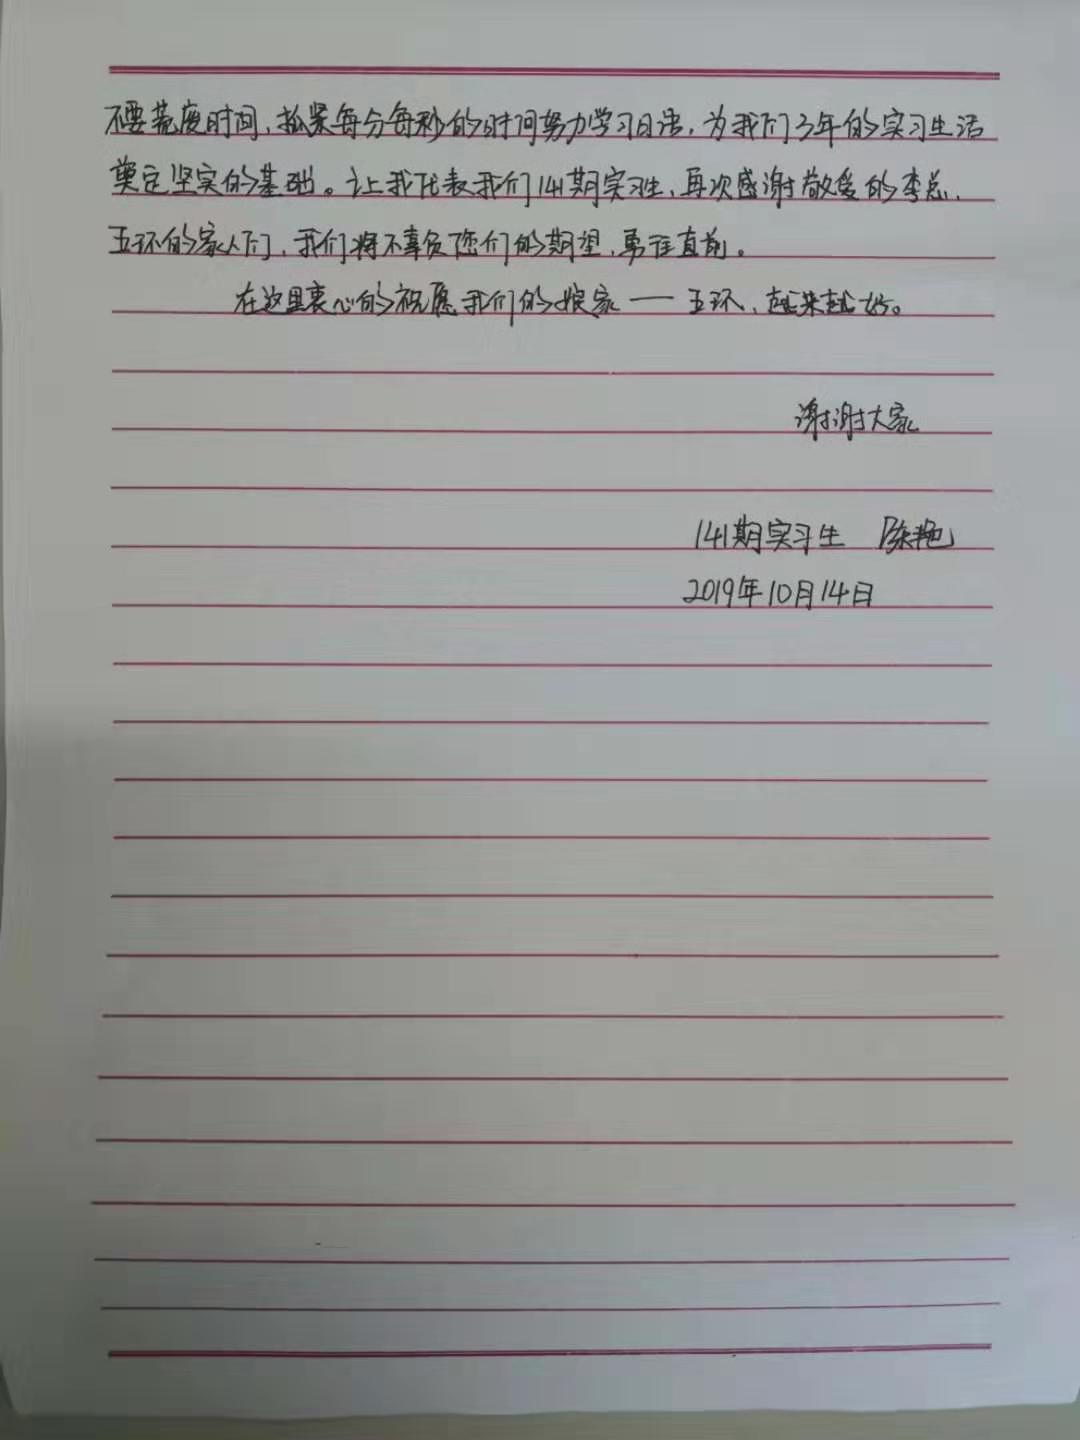 不要荒度时间,抓紧每分每秒的时间努力学习日语,为我们3年的实习生活
奠定坚实的基础。让我代表我们141期实习生,再次感谢敬爱的李总、
五环的家人们,我们将不辜负您们的期望,勇往直前。
在这里衷心的祝愿我们的娘家——五环、越来越好。
谢谢大家
141期实习生 陈艳
2019年10月14日